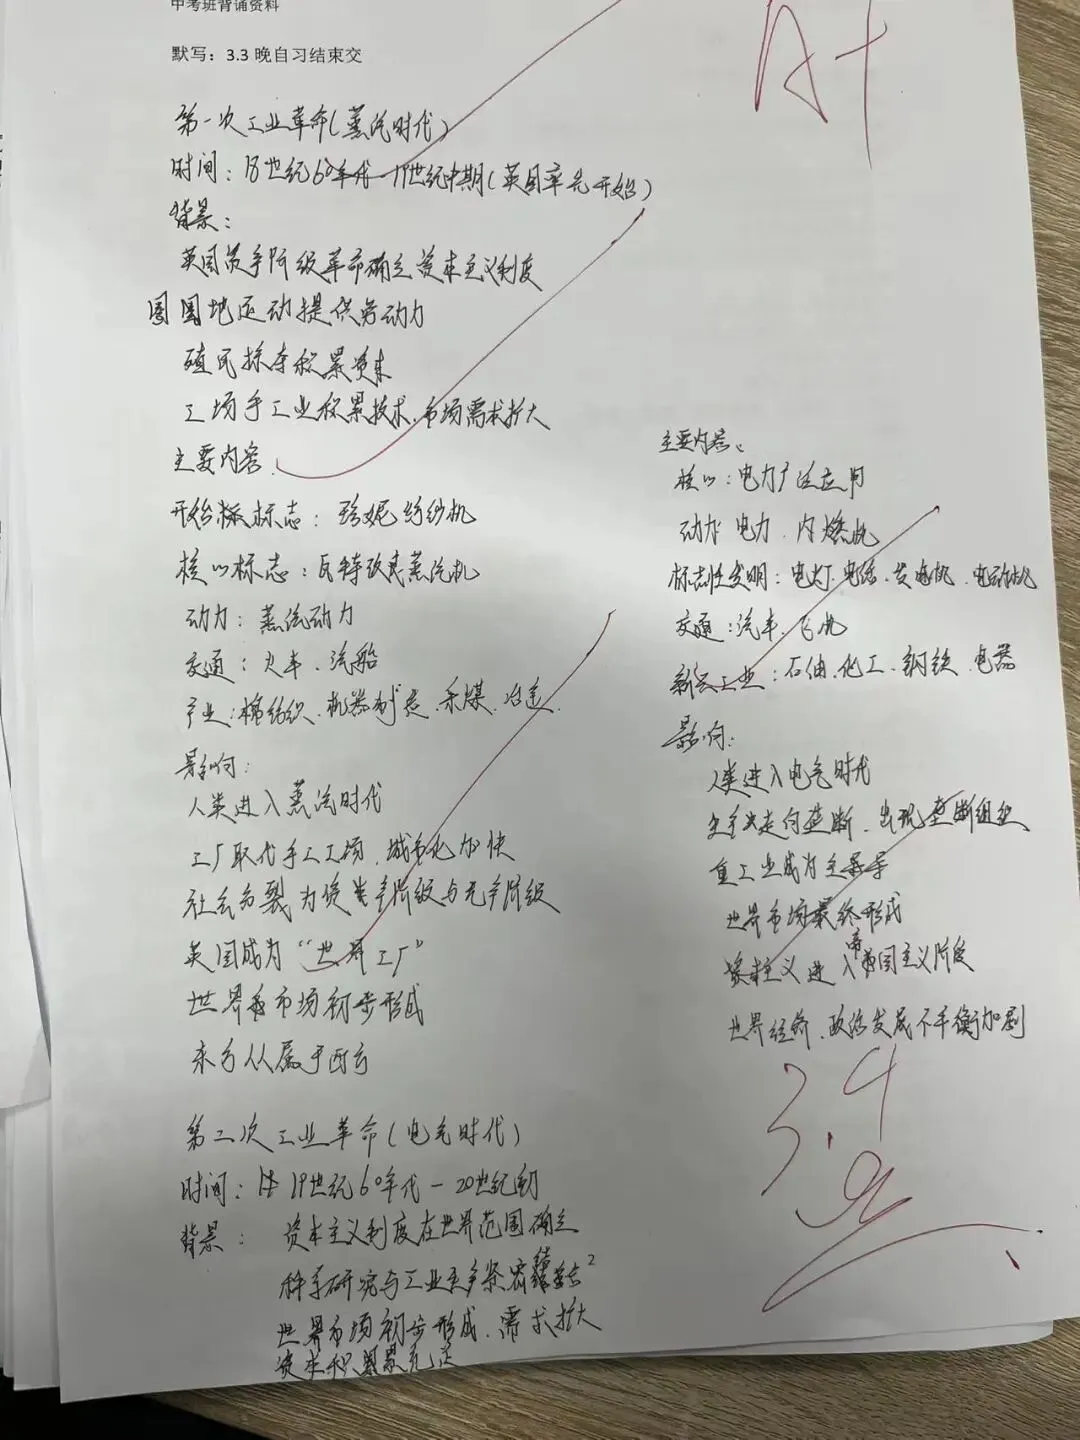 中考班背诵资料
默写：3.3 晚自习结束交
A+
第一次工业革命(蒸汽时代)
时间：18世纪60年代-19世纪中期(英国率先开始)
背景：
英国资产阶级革命确立资本主义制度
圈地运动提供劳动力
殖民掠夺积累资本
工场手工业积累技术、市场需求扩大
主要内容
开始标志：珍妮纺纱机
核心标志：瓦特改良蒸汽机
动力：蒸汽动力
交通：火车、汽船
产业：棉纺织、机器制造、采煤、冶金
影响：
人类进入蒸汽时代
工厂取代手工工场、城市化加快
社会分裂为资产阶级与无产阶级
英国成为“世界工厂”
世界市场初步形成
东方从属于西方
第二次工业革命(电气时代)
时间：19世纪60年代-20世纪初
背景：资本主义制度在世界范围确立
科学研究与工业生产紧密结合
世界市场初步形成、需求扩大
资本积累充足
主要内容：
核心：电力广泛应用
动力 电力、内燃机
标志性发明：电灯、电话、发电机、电动机
交通：汽车、飞机
新兴工业：石油、化工、钢铁、电器
影响：
人类进入电气时代
生产走向垄断、出现垄断组织
重工业成为主导
世界市场最终形成
资本主义进入帝国主义阶段
世界经济、政治发展不平衡加剧
3.4